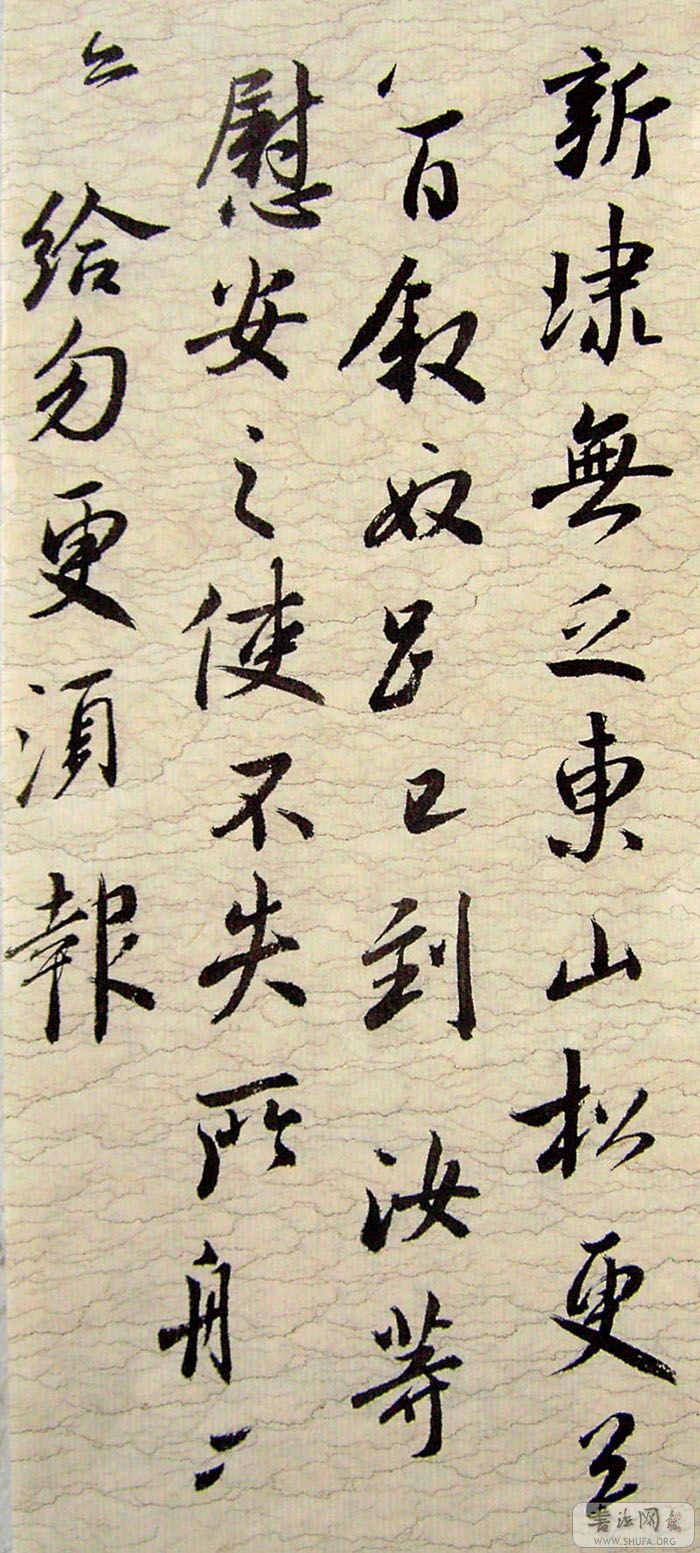 新埭無乏東山松更送
八百叙奴吕已到汝等
慰安之使不失所舟二
給勿更須報
書法网
WWW.SHUFA.ORG